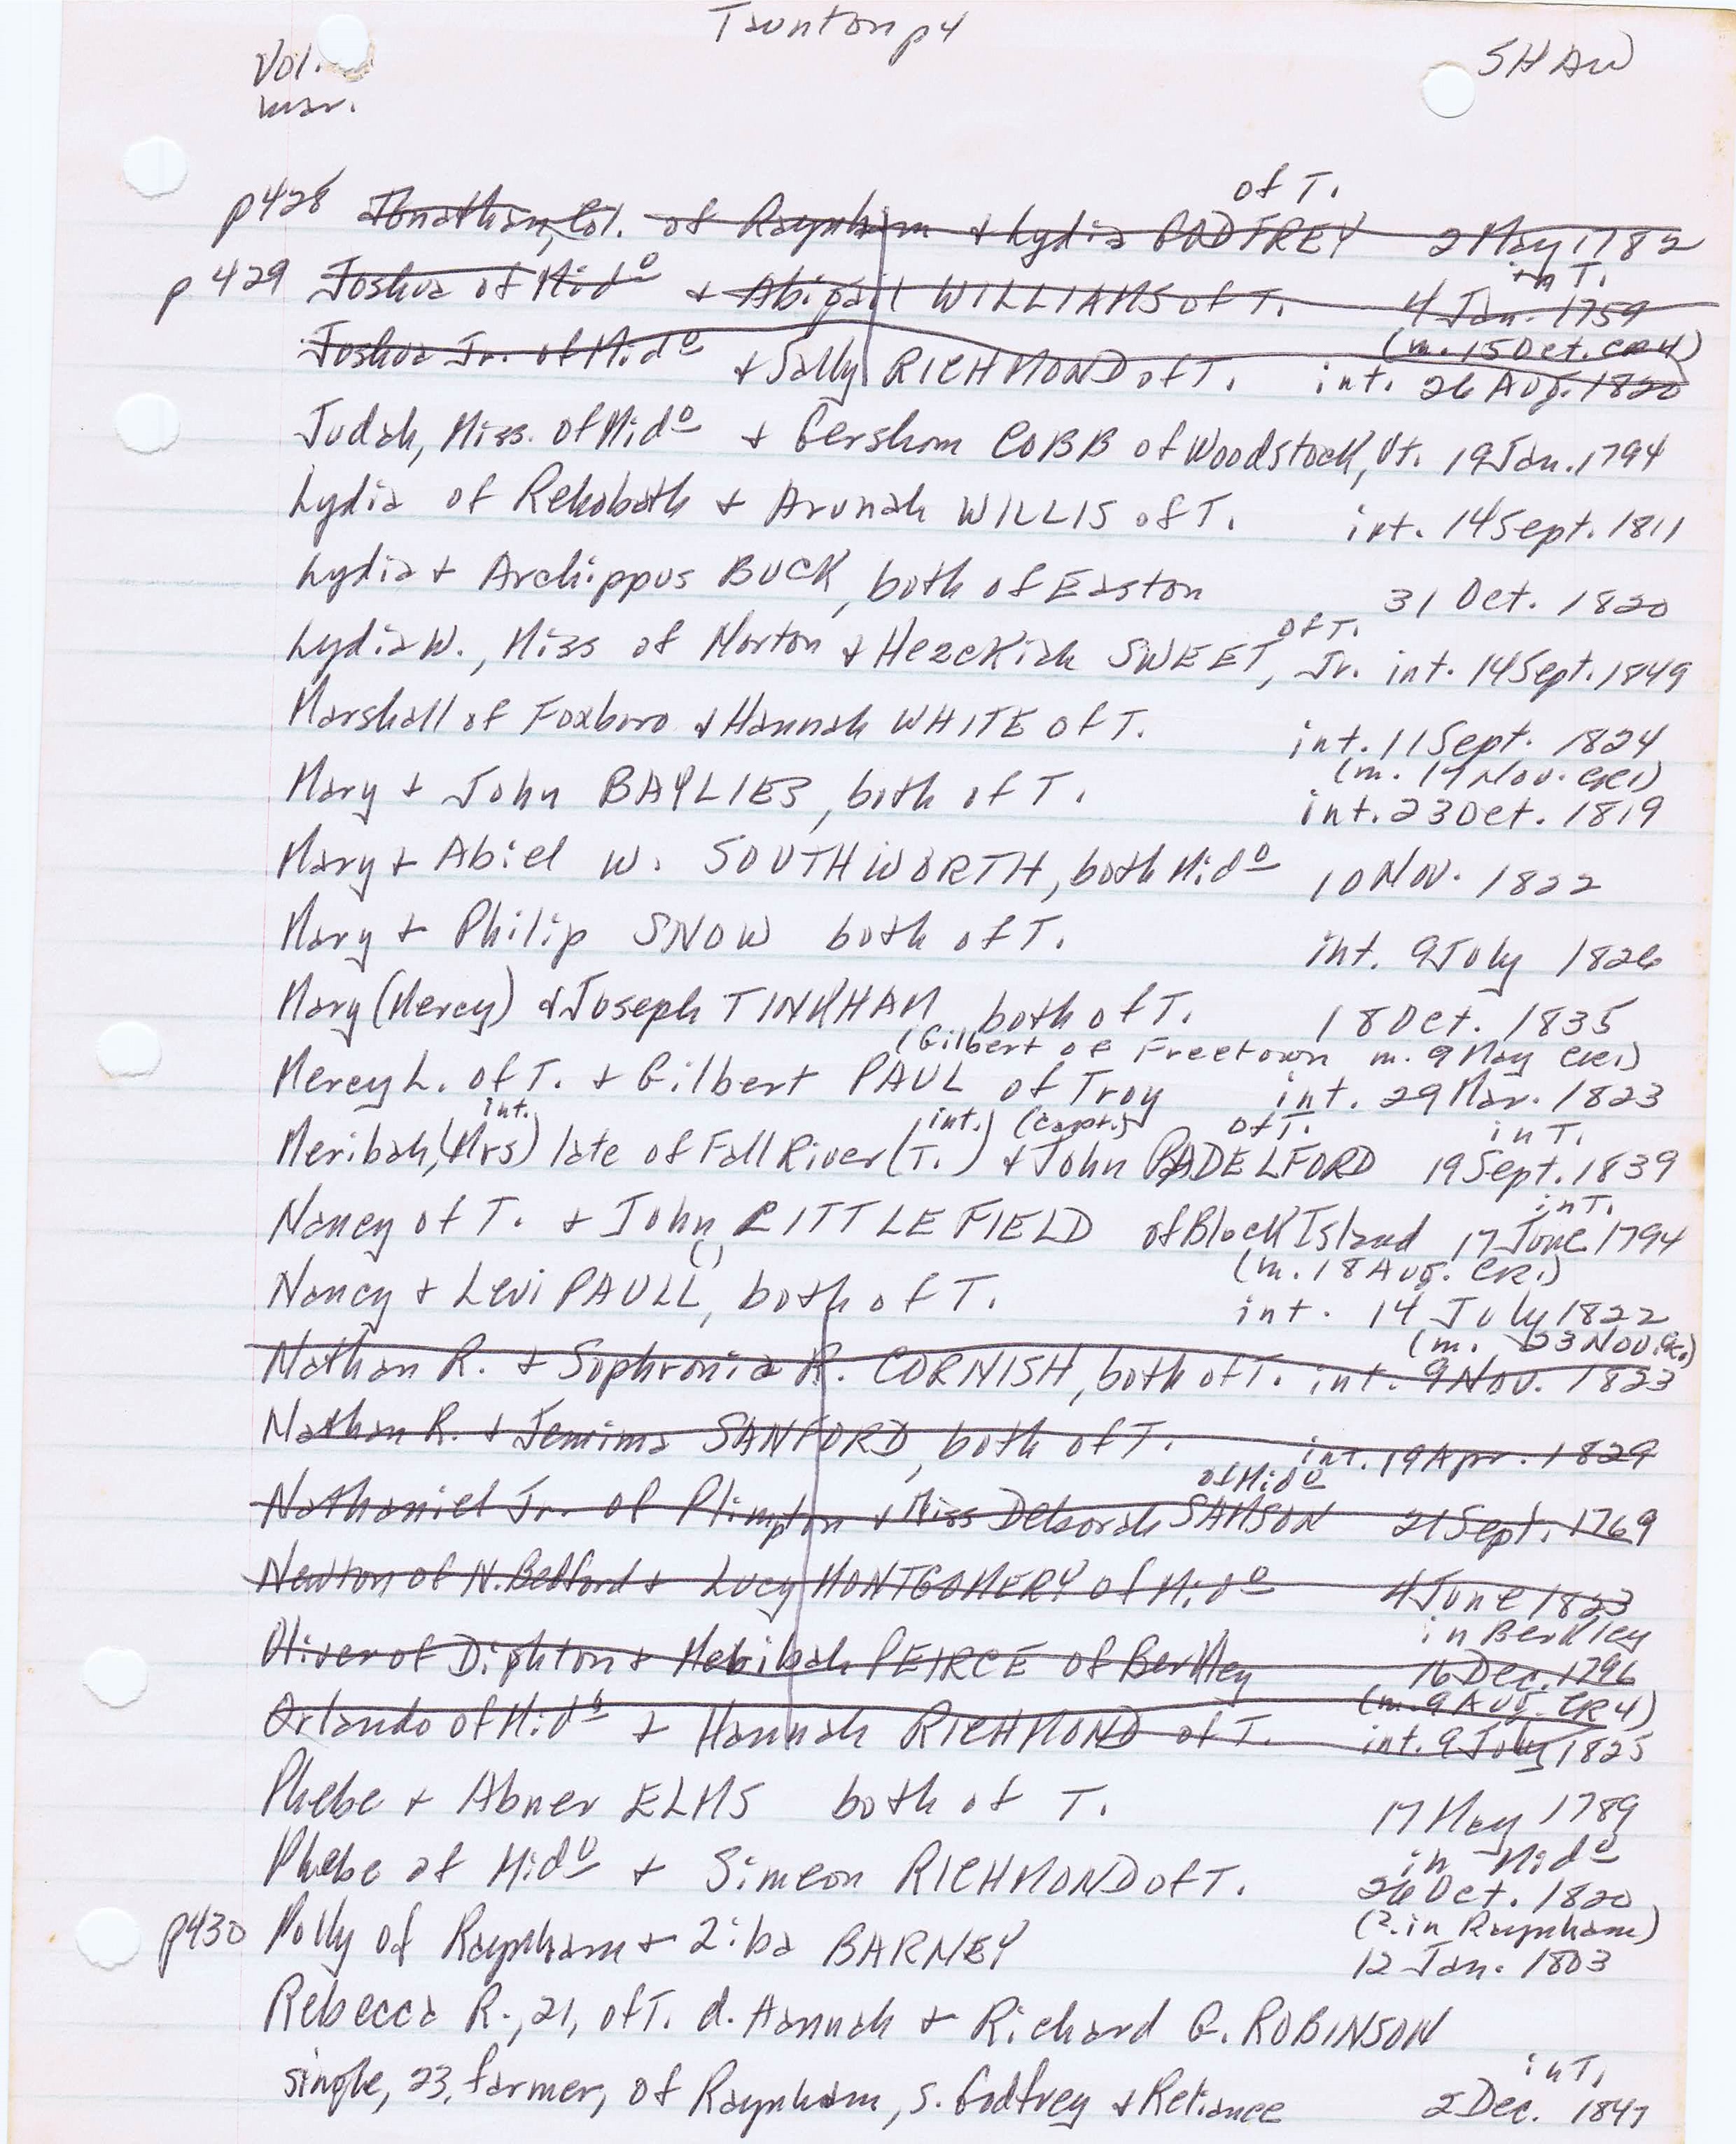 Taunton p4
Vol.
mar.
SHAW
of T.
p428 Jonathan, Col. of Raynham + Lydia GODFREY 2 May 1782
in T.
p429 Joshua of Mido + Abigail WILLIAMS of T. 4 Jan. 1759
(m. 15 Oct. CR4)
Joshua Jr. of Mido + Sally RICHMOND of T. int. 26 Aug. 1820
Judah, Miss. of Mido + Gershom COBB of Woodstock, Vt. 19 Jan. 1794
Lydia of Rehoboth + Arunah WILLIS of T. int. 14 Sept. 1811
Lydia + Archippus BUCK, both of Easton 31 Oct. 1820
of T.
Lydia W., Miss of Norton + Hezekiah SWEET, Jr. int. 14 Sept. 1849
Marshall of Foxboro + Hannah WHITE of T. int. 11 Sept. 1824
(m. 17 Nov. CR1)
Mary + John BAYLIES, both of T. int. 23 Oct. 1819
Mary + Abiel W. SOUTHWORTH, both Mido 10 Nov. 1822
Mary + Philip SNOW both of T. int. 9 July 1826
Mary (Mercy) + Joseph TINKHAM both of T. 18 Oct. 1835
(Gilbert of Freetown m. 9 May CR1)
Mercy L. of T. + Gilbert PAUL of Troy int. 29 Mar. 1823
int. int.) (Capt.) of T. in T.
Meribah, (Mrs) late of Fall River (T.) + John PADELFORD 19 Sept. 1839
in T.
Nancy of T. + John LITTLEFIELD of Block Island 17 June 1794
() (m. 18 Aug. CR1)
Nancy + Levi PAULL, both of T. int. 14 July 1822
(m. 23 Nov.)
Nathan R. + Sophronia R. CORNISH, both of T. int. 9 Nov. 1823
Nathan R. + Jemima SANFORD, both of T. int. 19 Apr. 1829
of Mido
Nathaniel Jr. of Plimpton + Miss Deborah SAMSON 21 Sept. 1769
Newton of N. Bedford + Lucy MONTGOMERY of Mido 4 June 1823
in Berkley
Oliver of Dighton + Mebibah PEIRCE of Berkley 16 Dec. 1796
(m. 9 Aug. CR4)
Orlando of Mido + Hannah RICHMOND of T. int. 9 July 1825
Phebe + Abner ELMS both of T. 17 May 1789
in Mido
Phebe of Mido + Simeon RICHMOND of T. 26 Oct. 1820
(2. in Raynham)
p430 Polly of Raynham + Ziba BARNEY 12 Jan. 1803
Rebecca R., 21, of T. d. Hannah + Richard G. ROBINSON
in T.
single, 23, farmer, of Raynham, s. Godfrey + Reliance 2 Dec. 1847